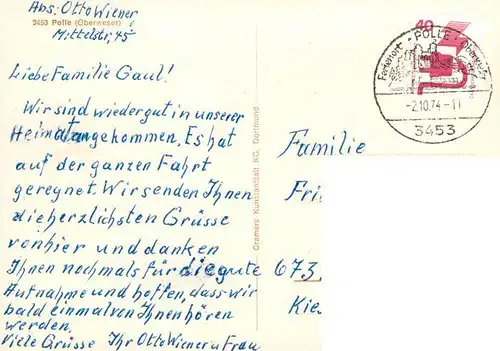 Abs: Otto Wiener
3453 Polle (Oberweser)
Mittelstr, 45
Liebe Familie Gaul!
Wir sind wieder gut in unserer
Heimat angekommen, Es hat
auf der ganzen Fahrt
geregnet. Wir senden Ihnen
die herzlichsten Grüsse
von hier und danken
Ihnen nochmals für die gute
Aufnahme und hoffen, dass wir
bald einmal von Ihnen hören
werden.
Viele Grüsse Ihr Otto Wiener u Frau
Cramers Kunstanstalt KG, Dortmund
40
Ferienort · POLLE · Oberweser
-2.10.74-11
3453
Familie
Fri
673
Kie